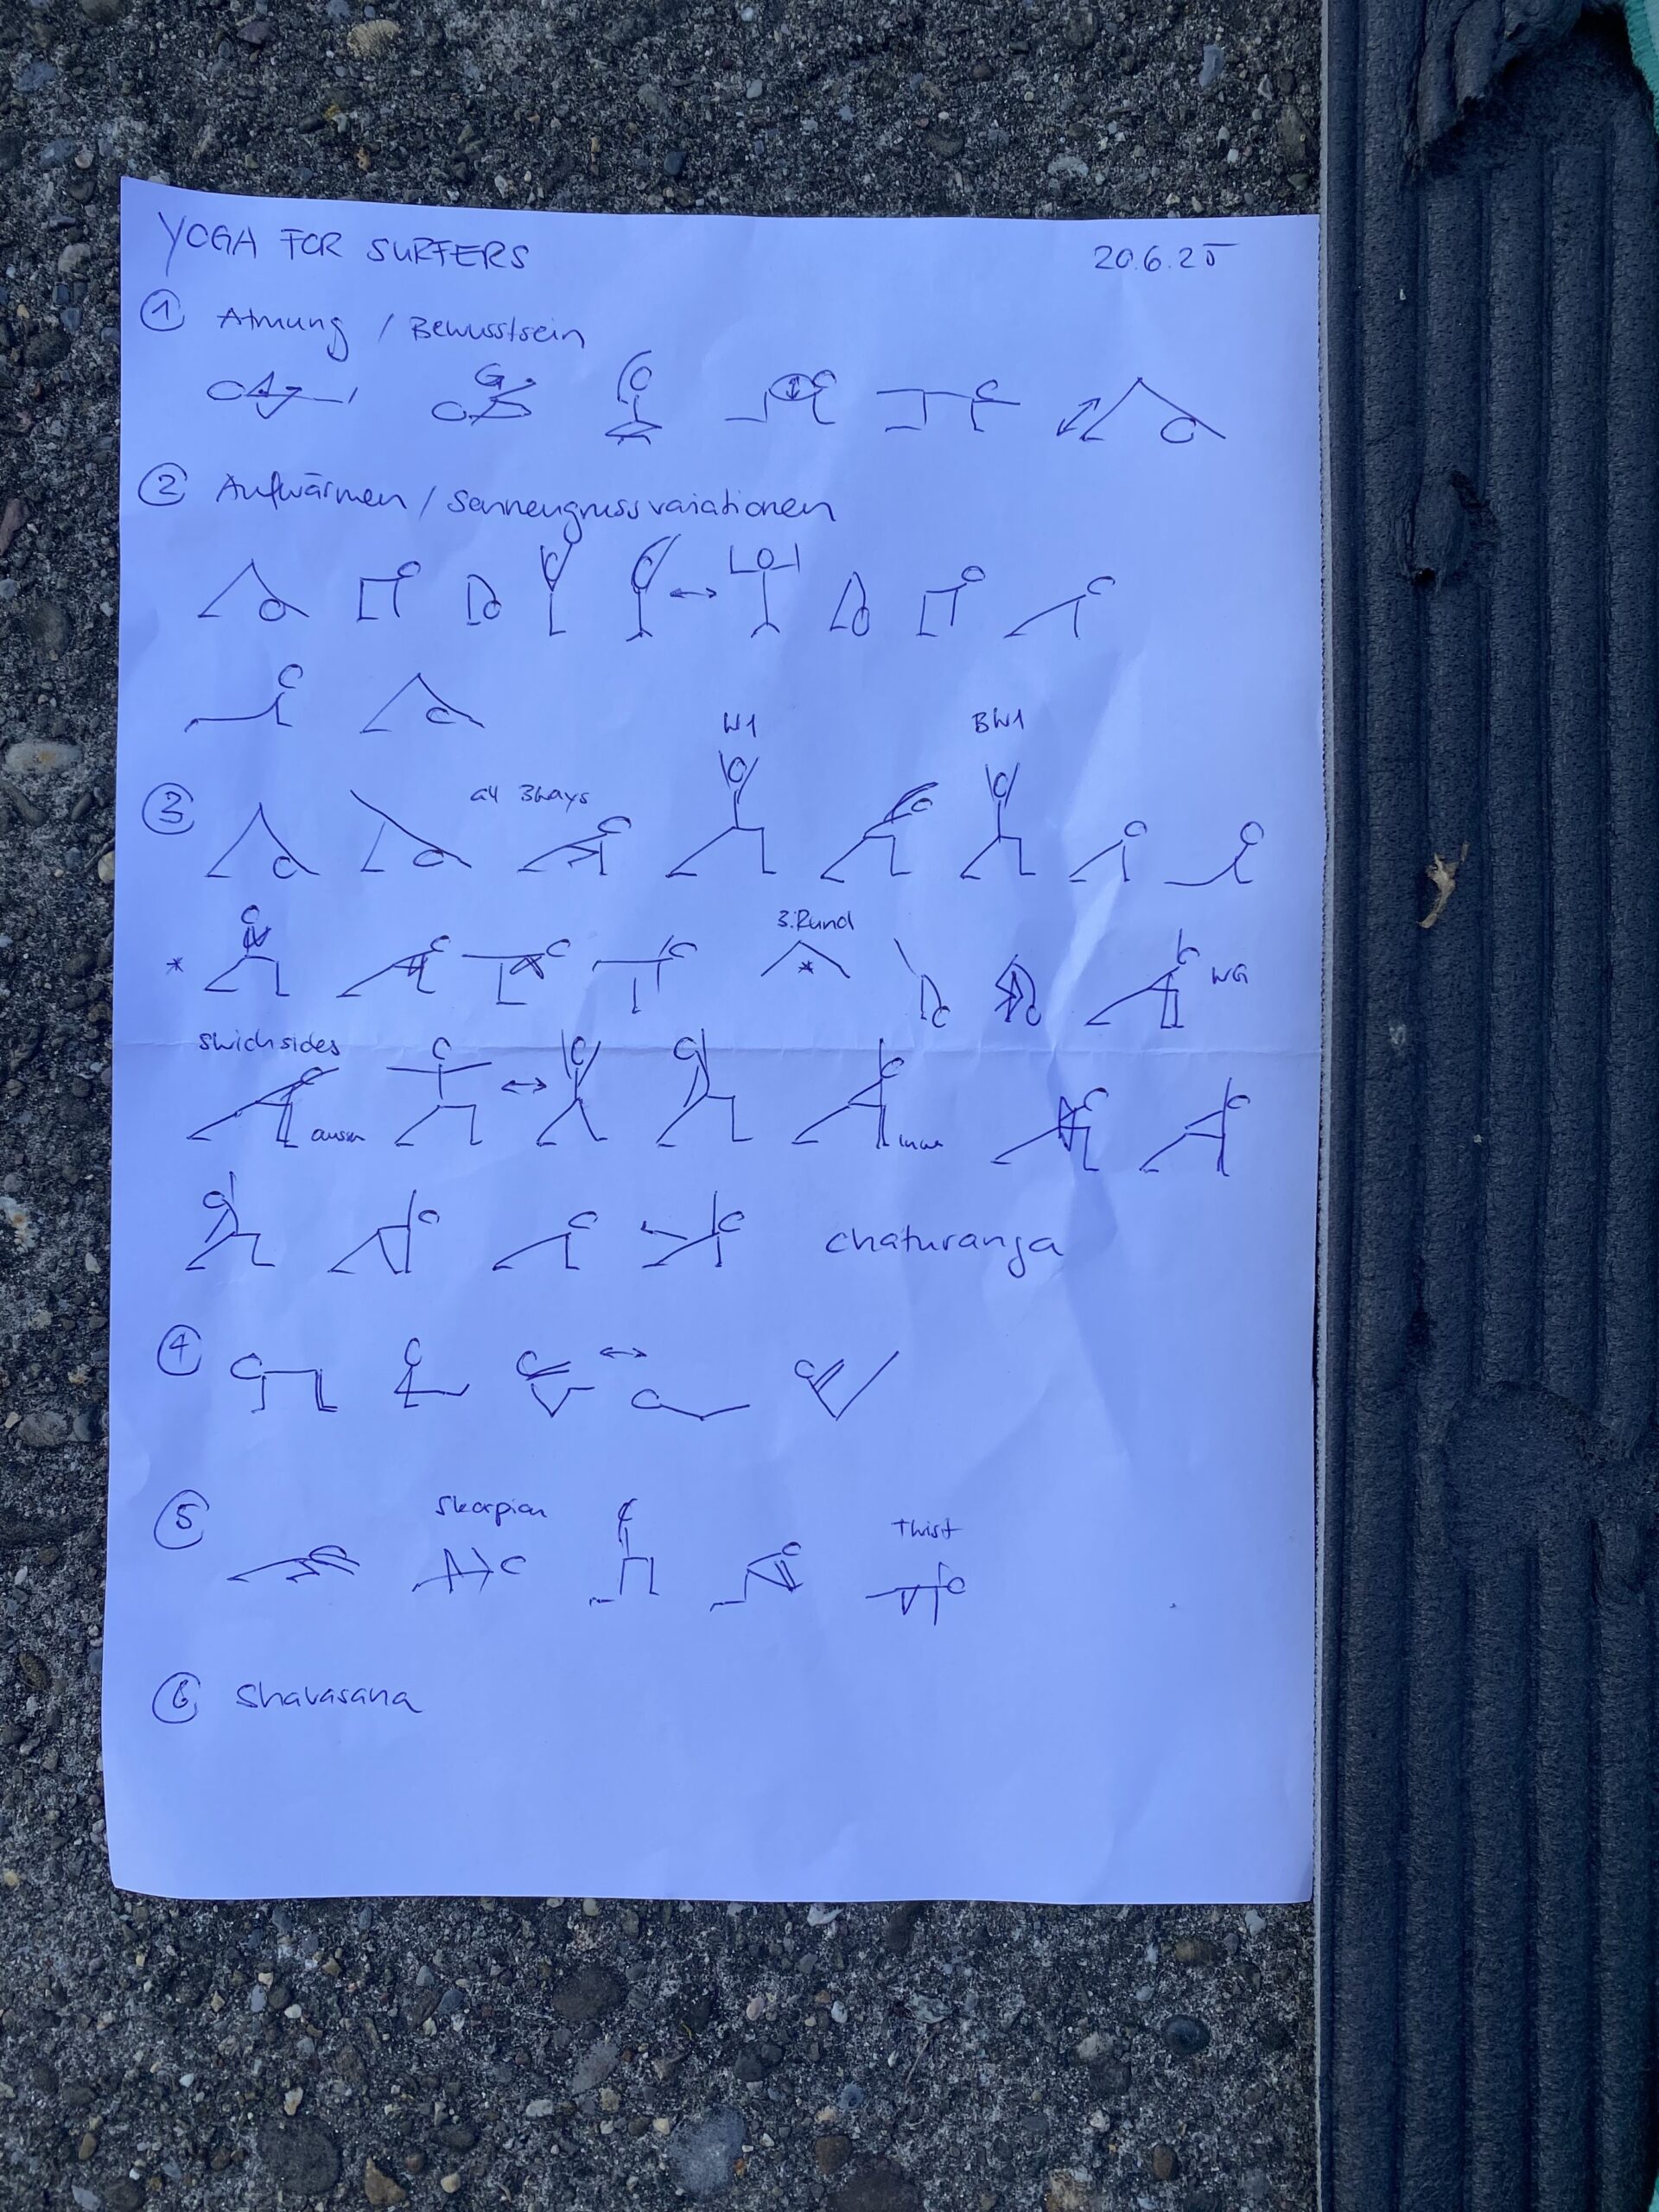 YOGA FOR SURFERS 20.6.25
① Atmung / Bewusstsein
② Aufwärmen / Sonnengrussvariationen
W1 BW1
③ all 3 Ways
* 3. Rund
* WG
swich sides
aussen innen
chaturanga
④
⑤ Skorpion Twist
⑥ Shavasana